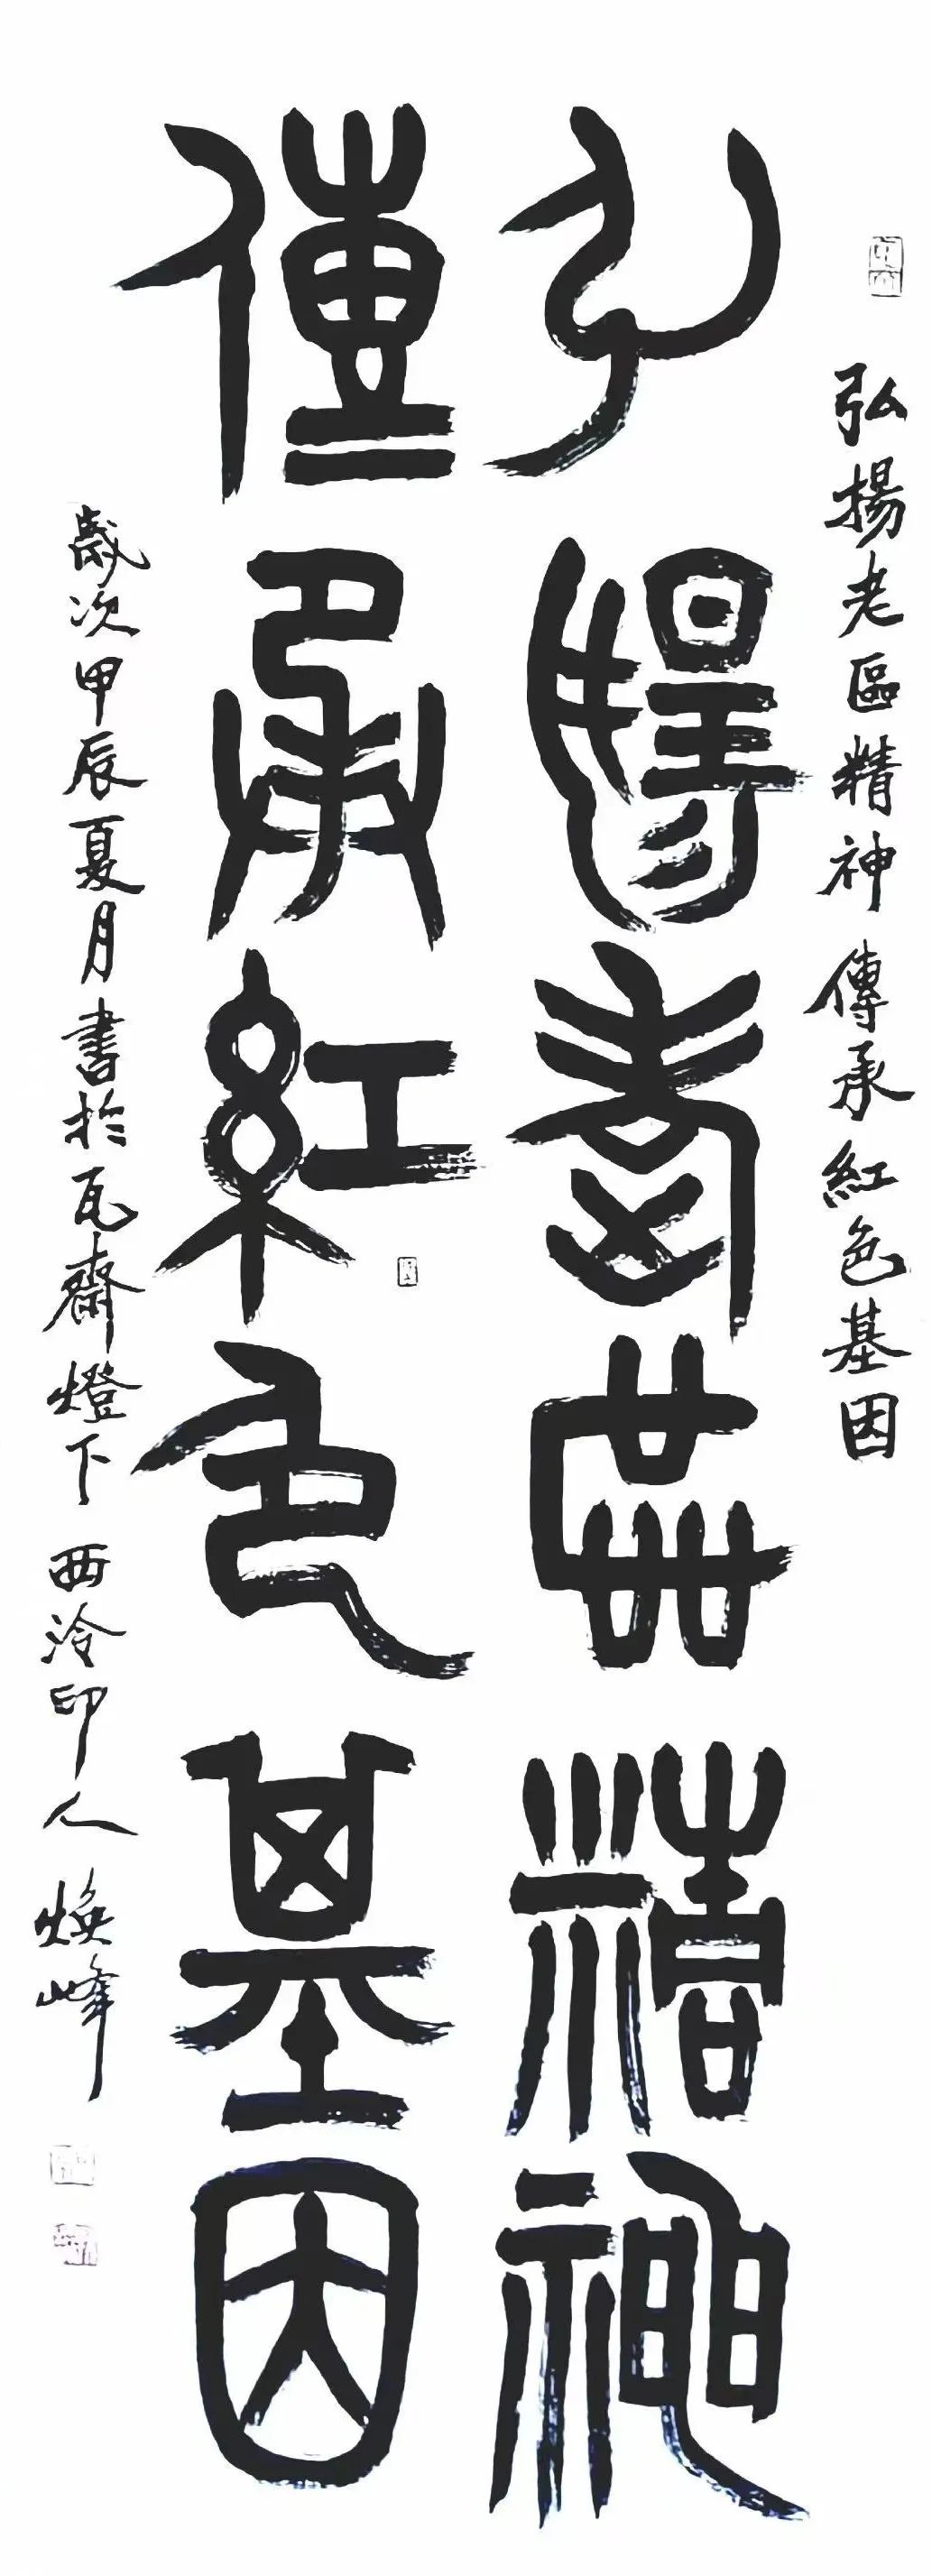 弘揚老區精神傳承紅色基因
弘揚老區精神
傳承紅色基因
歲次甲辰夏月書於瓦齋燈下西泠印人煥峰